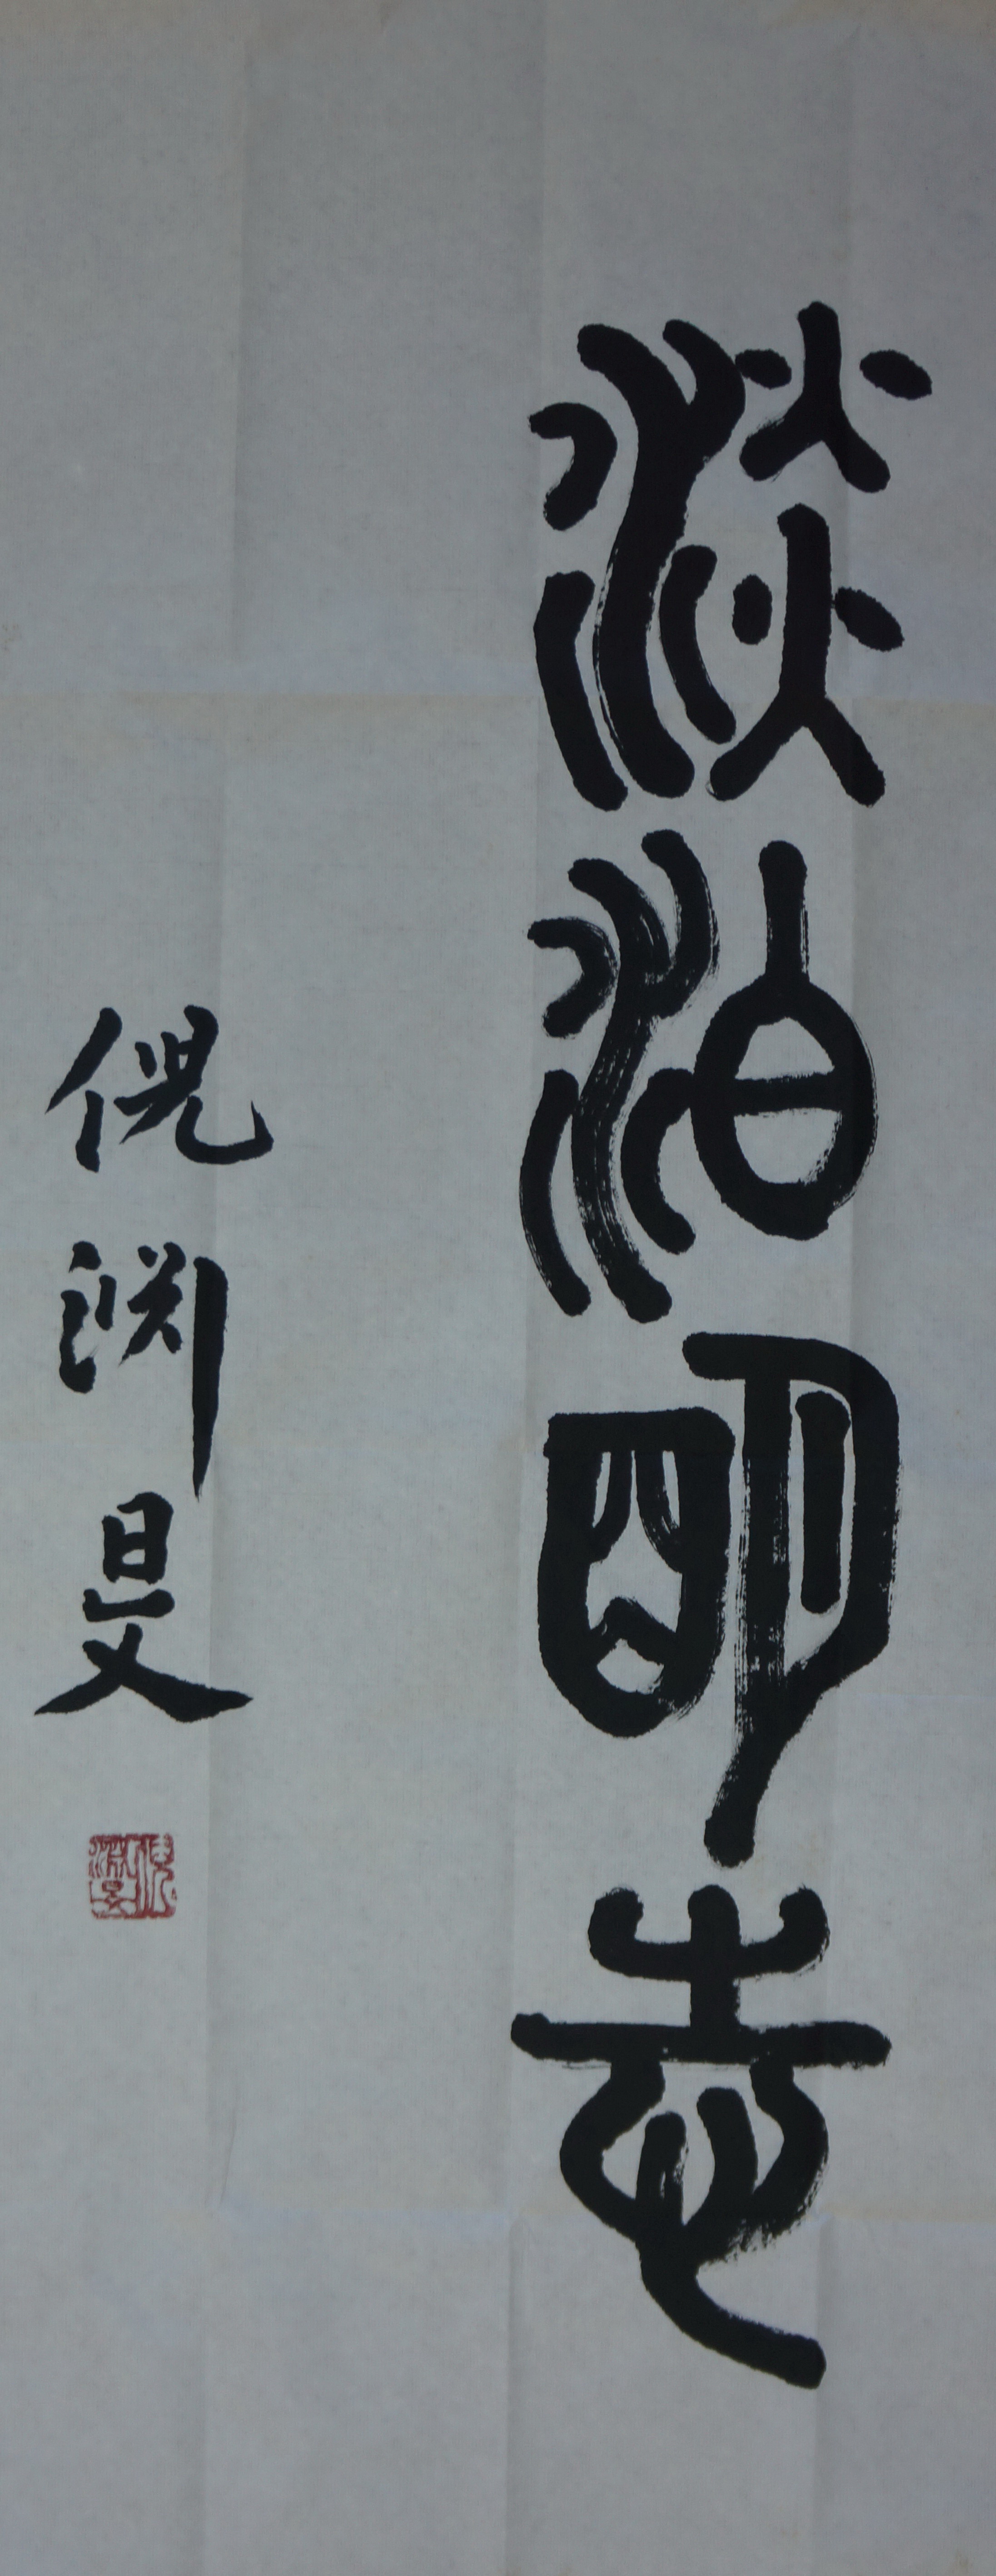 淡泊明志
倪渊旻